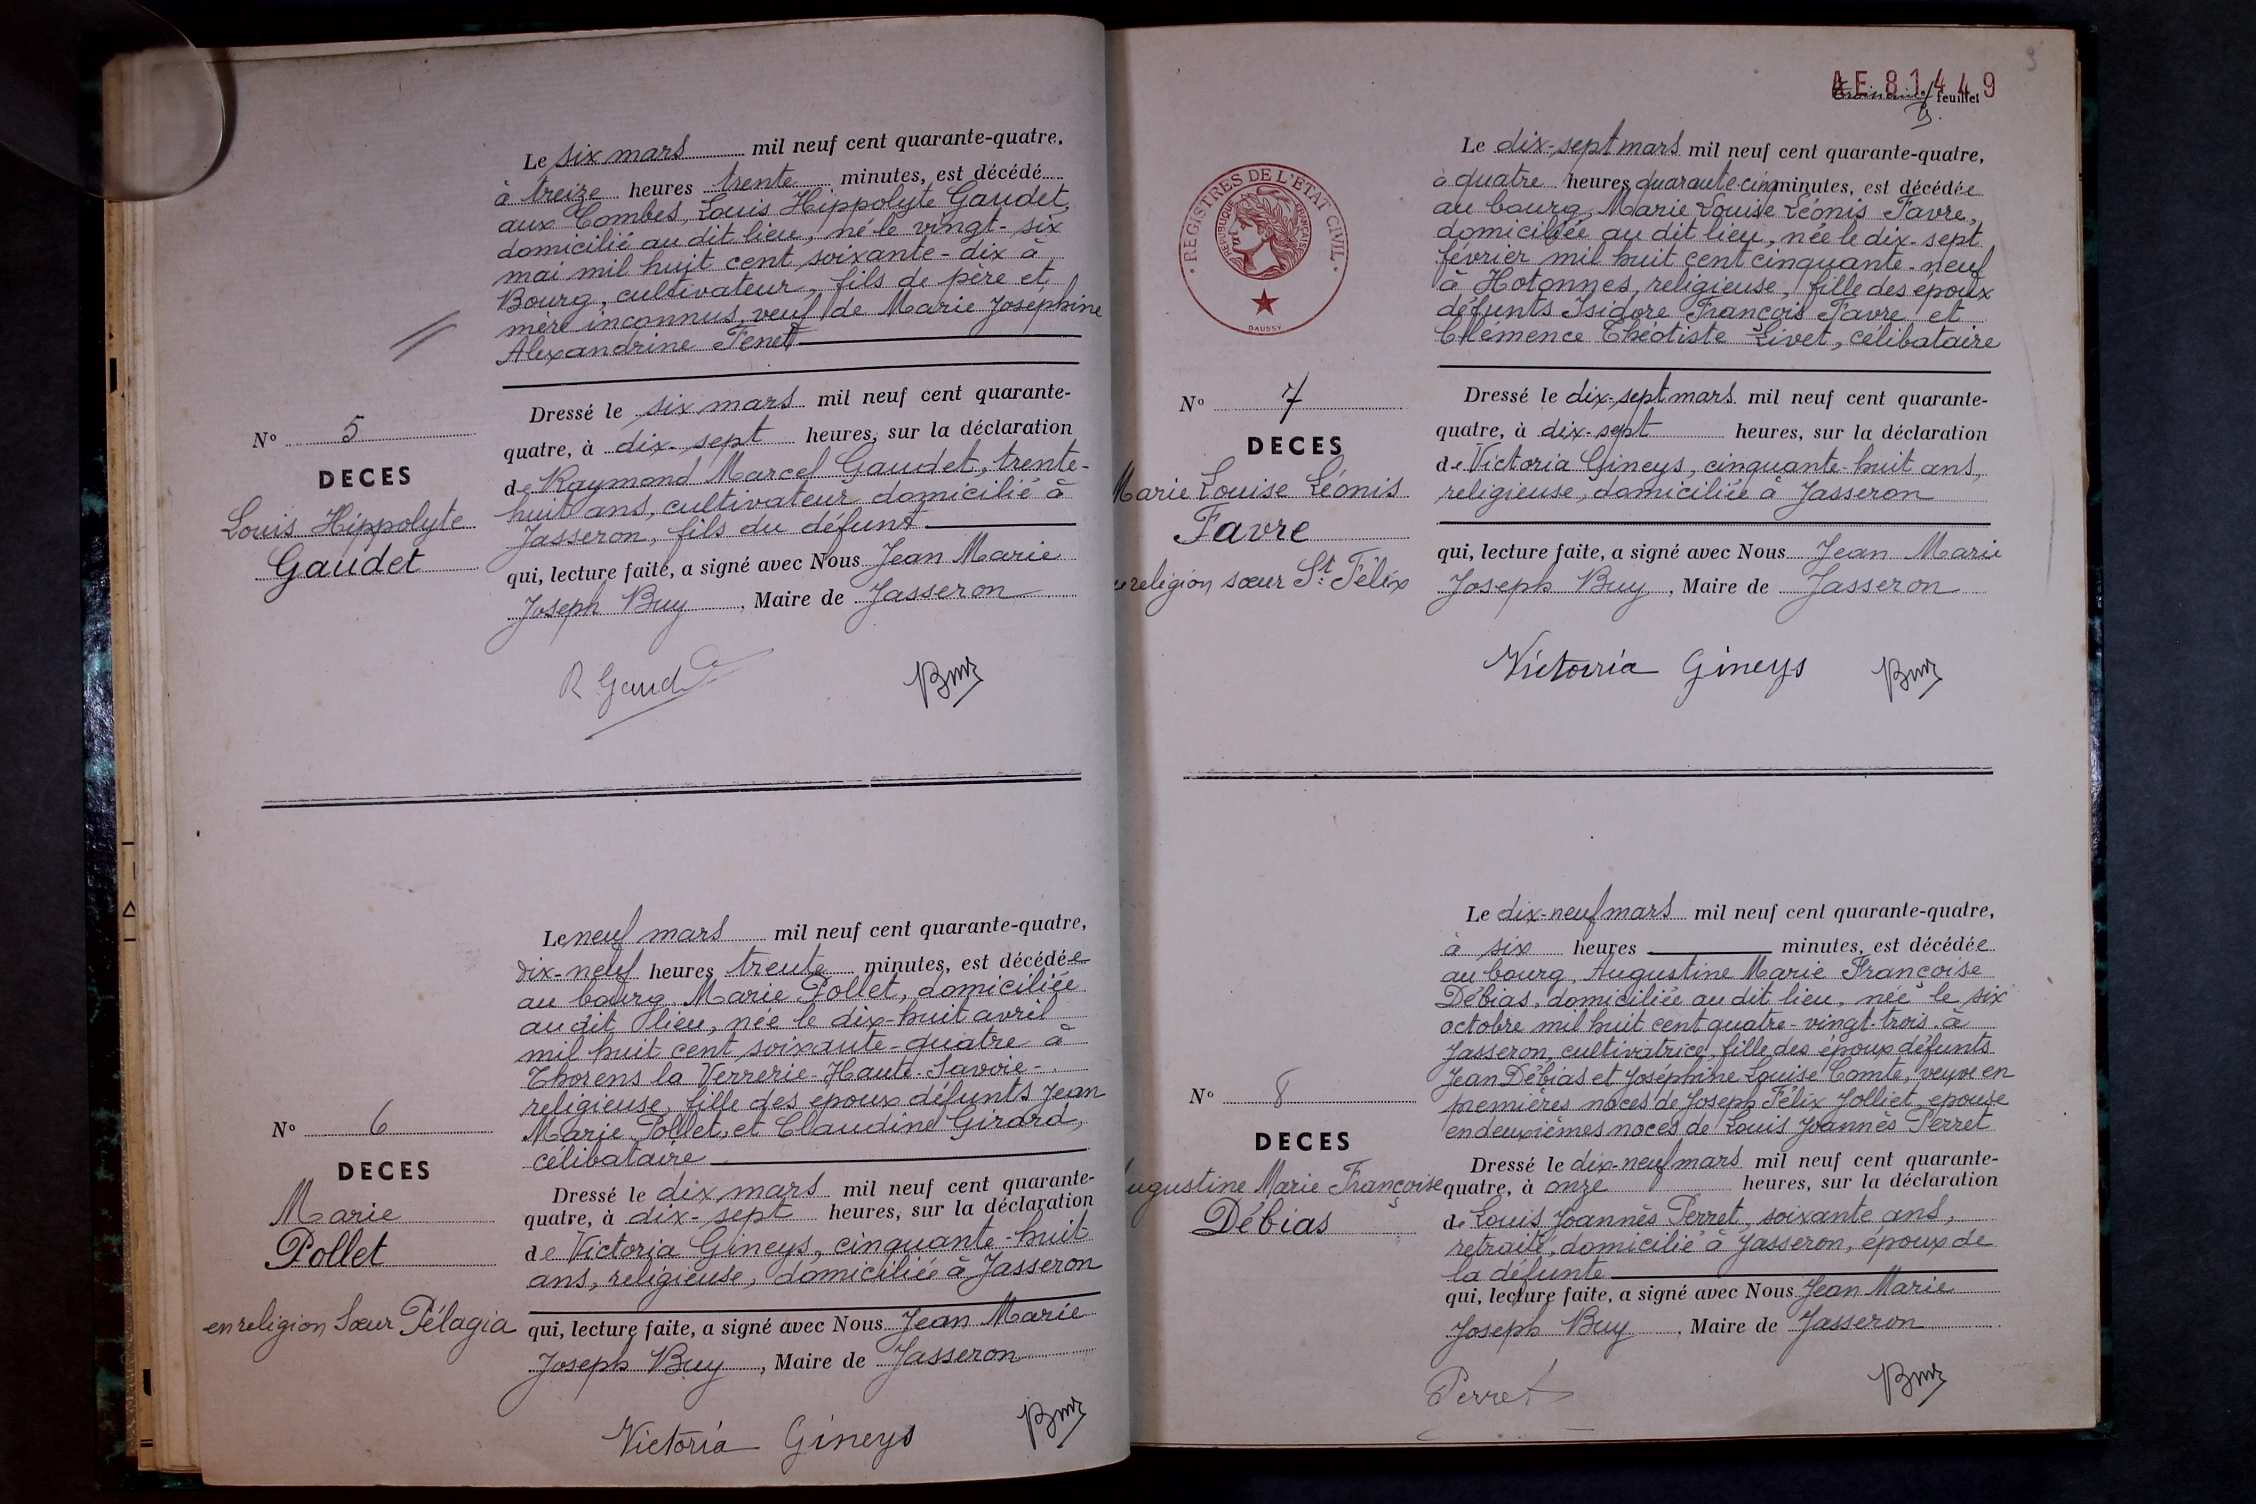 Le six mars mil neuf cent quarante-quatre,
à treize heures trente minutes, est décédé
aux Combes, Louis Hippolyte Gaudet,
domicilié au dit lieu, né le vingt-six
mai mil huit cent soixante-dix à
Bourg, cultivateur, fils de père et
mère inconnus, veuf de Marie Joséphine
Alexandrine Fenet
Dressé le six mars mil neuf cent quarante-
quatre, à dix-sept heures, sur la déclaration
de Raymond Marcel Gaudet, trente-
huit ans, cultivateur domicilié à
Jasseron, fils du défunt
qui, lecture faite, a signé avec Nous Jean Marie
Joseph Buy, Maire de Jasseron
N° 5
DECES
Louis Hippolyte
Gaudet
R Gaudet
Buy
Le neuf mars mil neuf cent quarante-quatre,
dix-neuf heures trente minutes, est décédée
au bourg Marie Pollet, domiciliée
au dit lieu, née le dix-huit avril
mil huit cent soixante-quatre à
Thorens la Verrerie - Haute-Savoie -
religieuse, fille des époux défunts Jean
Marie Pollet, et Claudine Girard,
célibataire
Dressé le dix mars mil neuf cent quarante-
quatre, à dix-sept heures, sur la déclaration
de Victoria Gineys, cinquante-huit
ans, religieuse, domiciliée à Jasseron
qui, lecture faite, a signé avec Nous Jean Marie
Joseph Buy, Maire de Jasseron
N° 6
DECES
Marie
Pollet
en religion Sœur Pélagia
Victoria Gineys
Buy
3
AE 81449
feuillet
REGISTRES DE L'ETAT CIVIL
REPUBLIQUE FRANÇAISE
DAUSSY
Le dix-sept mars mil neuf cent quarante-quatre,
à quatre heures quarante-cinq minutes, est décédée
au bourg, Marie Louise Léonis Favre,
domiciliée au dit lieu, née le dix-sept
février mil huit cent cinquante-neuf
à Hotonnes, religieuse, fille des époux
défunts Isidore François Favre et
Clémence Théotiste Livet, célibataire
Dressé le dix-sept mars mil neuf cent quarante-
quatre, à dix-sept heures, sur la déclaration
de Victoria Gineys, cinquante-huit ans,
religieuse, domiciliée à Jasseron
qui, lecture faite, a signé avec Nous Jean Marie
Joseph Buy, Maire de Jasseron
N° 7
DECES
Marie Louise Léonis
Favre
religion sœur St Félix
Victoria Gineys
Buy
Le dix-neuf mars mil neuf cent quarante-quatre,
à six heures minutes, est décédée
au bourg, Augustine Marie Françoise
Débias, domiciliée au dit lieu, née le six
octobre mil huit cent quatre-vingt-trois à
Jasseron, cultivatrice, fille des époux défunts
Jean Débias et Joséphine Louise Comte, veuve en
premières noces de Joseph Félix Jolliet, epouse
en deuxièmes noces de Louis Joannès Perret
Dressé le dix-neuf mars mil neuf cent quarante-
quatre, à onze heures, sur la déclaration
de Louis Joannès Perret, soixante ans,
retraité, domicilié à Jasseron, époux de
la défunte
qui, lecture faite, a signé avec Nous Jean Marie
Joseph Buy, Maire de Jasseron
N° 8
DECES
Augustine Marie Françoise
Débias
Perret
Buy